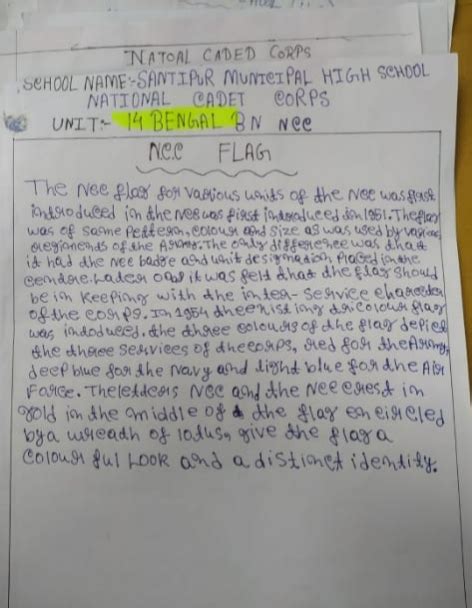 NATOAL CADED CORPS
SCHOOL NAME:-SANTIPUR MUNICIPAL HIGH SCHOOL
NATIONAL CADET CORPS
UNIT:- 14 BENGAL BN NCC
NCC FLAG
The NCC flag for various units of the NCC was first
introduced in the NCC was first introduced in 1951. The flag
was of same pettern, colour and size as was used by various
regionends of the Army. The only difference was that
it had the NCC badge and unit designation placed in the
centre. Later on it was feld that the flag should
be in keeping with the inter-service charecter
of the corps. In 1954 the existing tricolour flag
was indoduced. the three colours of the flag depict
the three services of the corps, red for the Army,
deep blue for the Navy and light blue for the Air
Farce. The letters NCC and the NCC crest in
gold in the middle of the flag encircled
by a wreadh of lotus, give the flag a
colour ful Look and a distinct identidy.